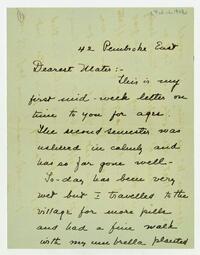 42 Pembroke East
Dearest Mater:-
This is my
first mid-week letter on
time to you for ages.
The second semester was
ushered in calmly and
has so far gone well-
To-day has been very
wet but I travelled to the
village for more pills
and had a fine walk
with my umbrella planted